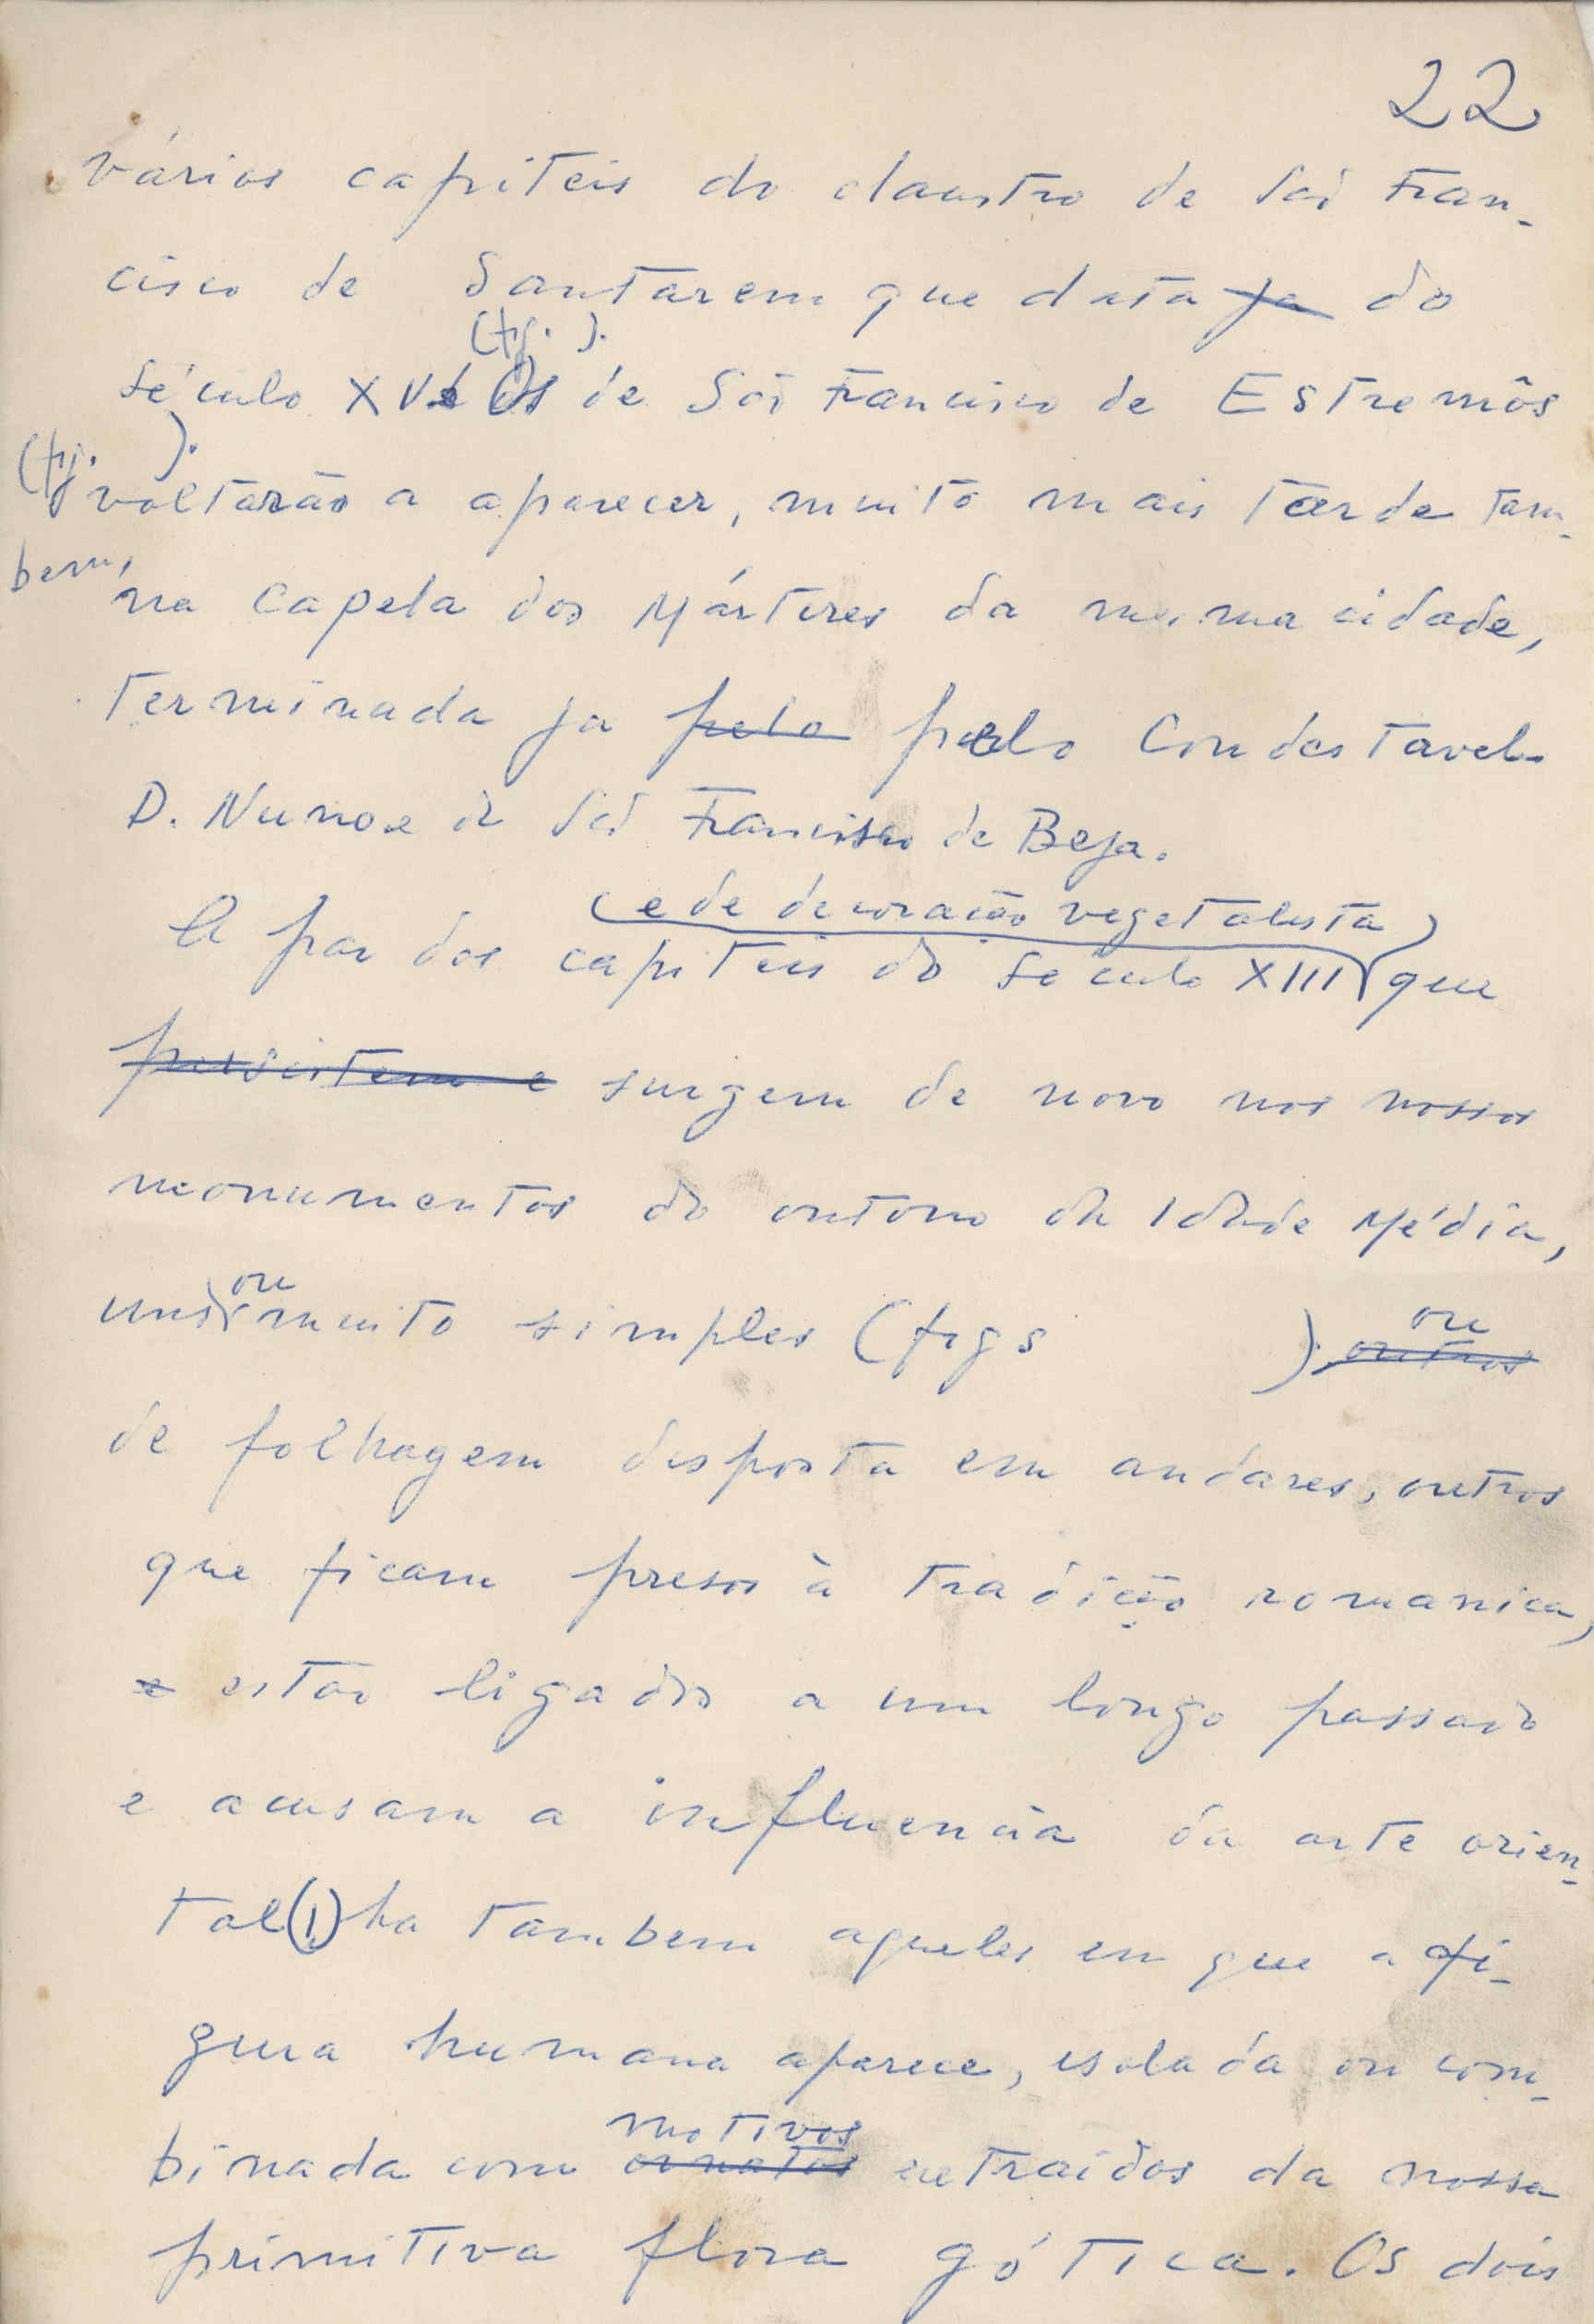 22
vários capiteis do claustro de São Fran-
cisco de Santarem que data ja do
(fig. ).
século XV. Os de São Francisco de Estremôs
(fig. ).
voltarão a aparecer, muito mais tarde tam-
bem,
na Capela dos Mártires da mesma cidade,
terminada ja pelo pelo Condestavel
D. Nuno e de São Francisco de Beja.
(e de decoração vegetalista)
A par dos capiteis do século XIII que
persistem e surgem de novo nos nossos
monumentos do outono da Idade Média,
ou
uns muito simples (figs ) outros
ou
de folhagem disposta em andares, outros
que ficam presos à tradição romanica,
e estão ligados a um longo passado
e acusam a influencia da arte orien-
tal(1) ha tambem aqueles em que a fi-
gura humana aparece, isolada ou com-
motivos
binada com ornatos extraidos da nossa
primitiva flora gótica. Os dois